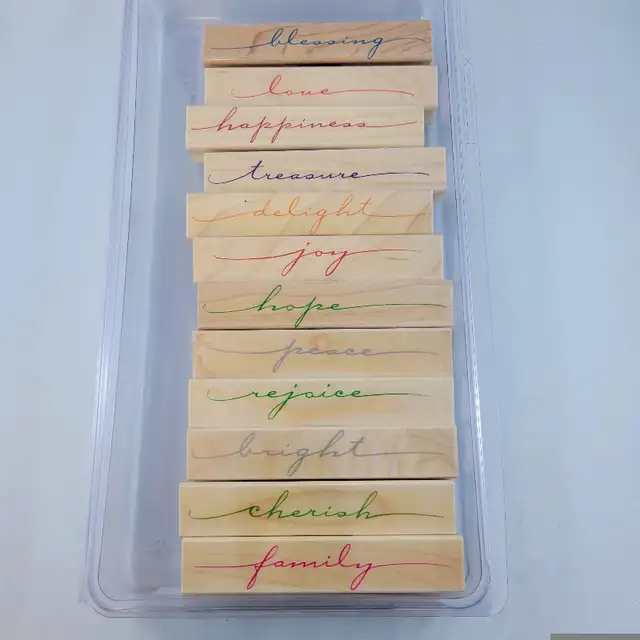 blessing
love
happiness
treasure
delight
joy
hope
peace
rejoice
bright
cherish
family